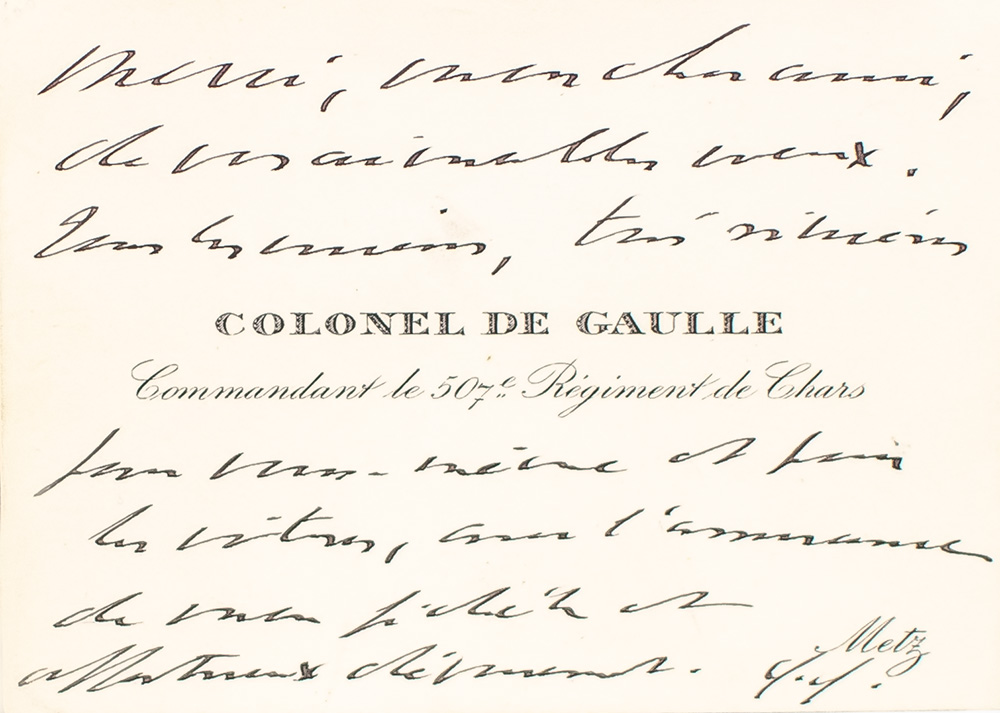 Merci, mon cher ami,
de vos aimables voeux.
Tous les miens, très sincères
COLONEL DE GAULLE
Commandant le 507e Régiment de Chars
pour vous-même et pour
les vôtres, avec l'assurance
de mon fidèle et
affectueux dévouement.
Metz